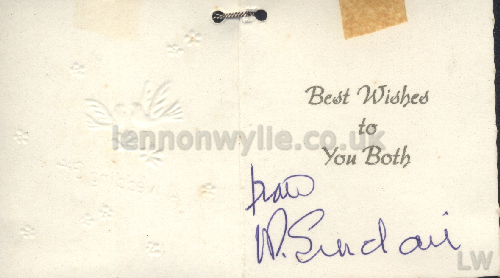 Best Wishes
to
You Both
from
W. Sinclair
lennonwylie.co.uk
LW